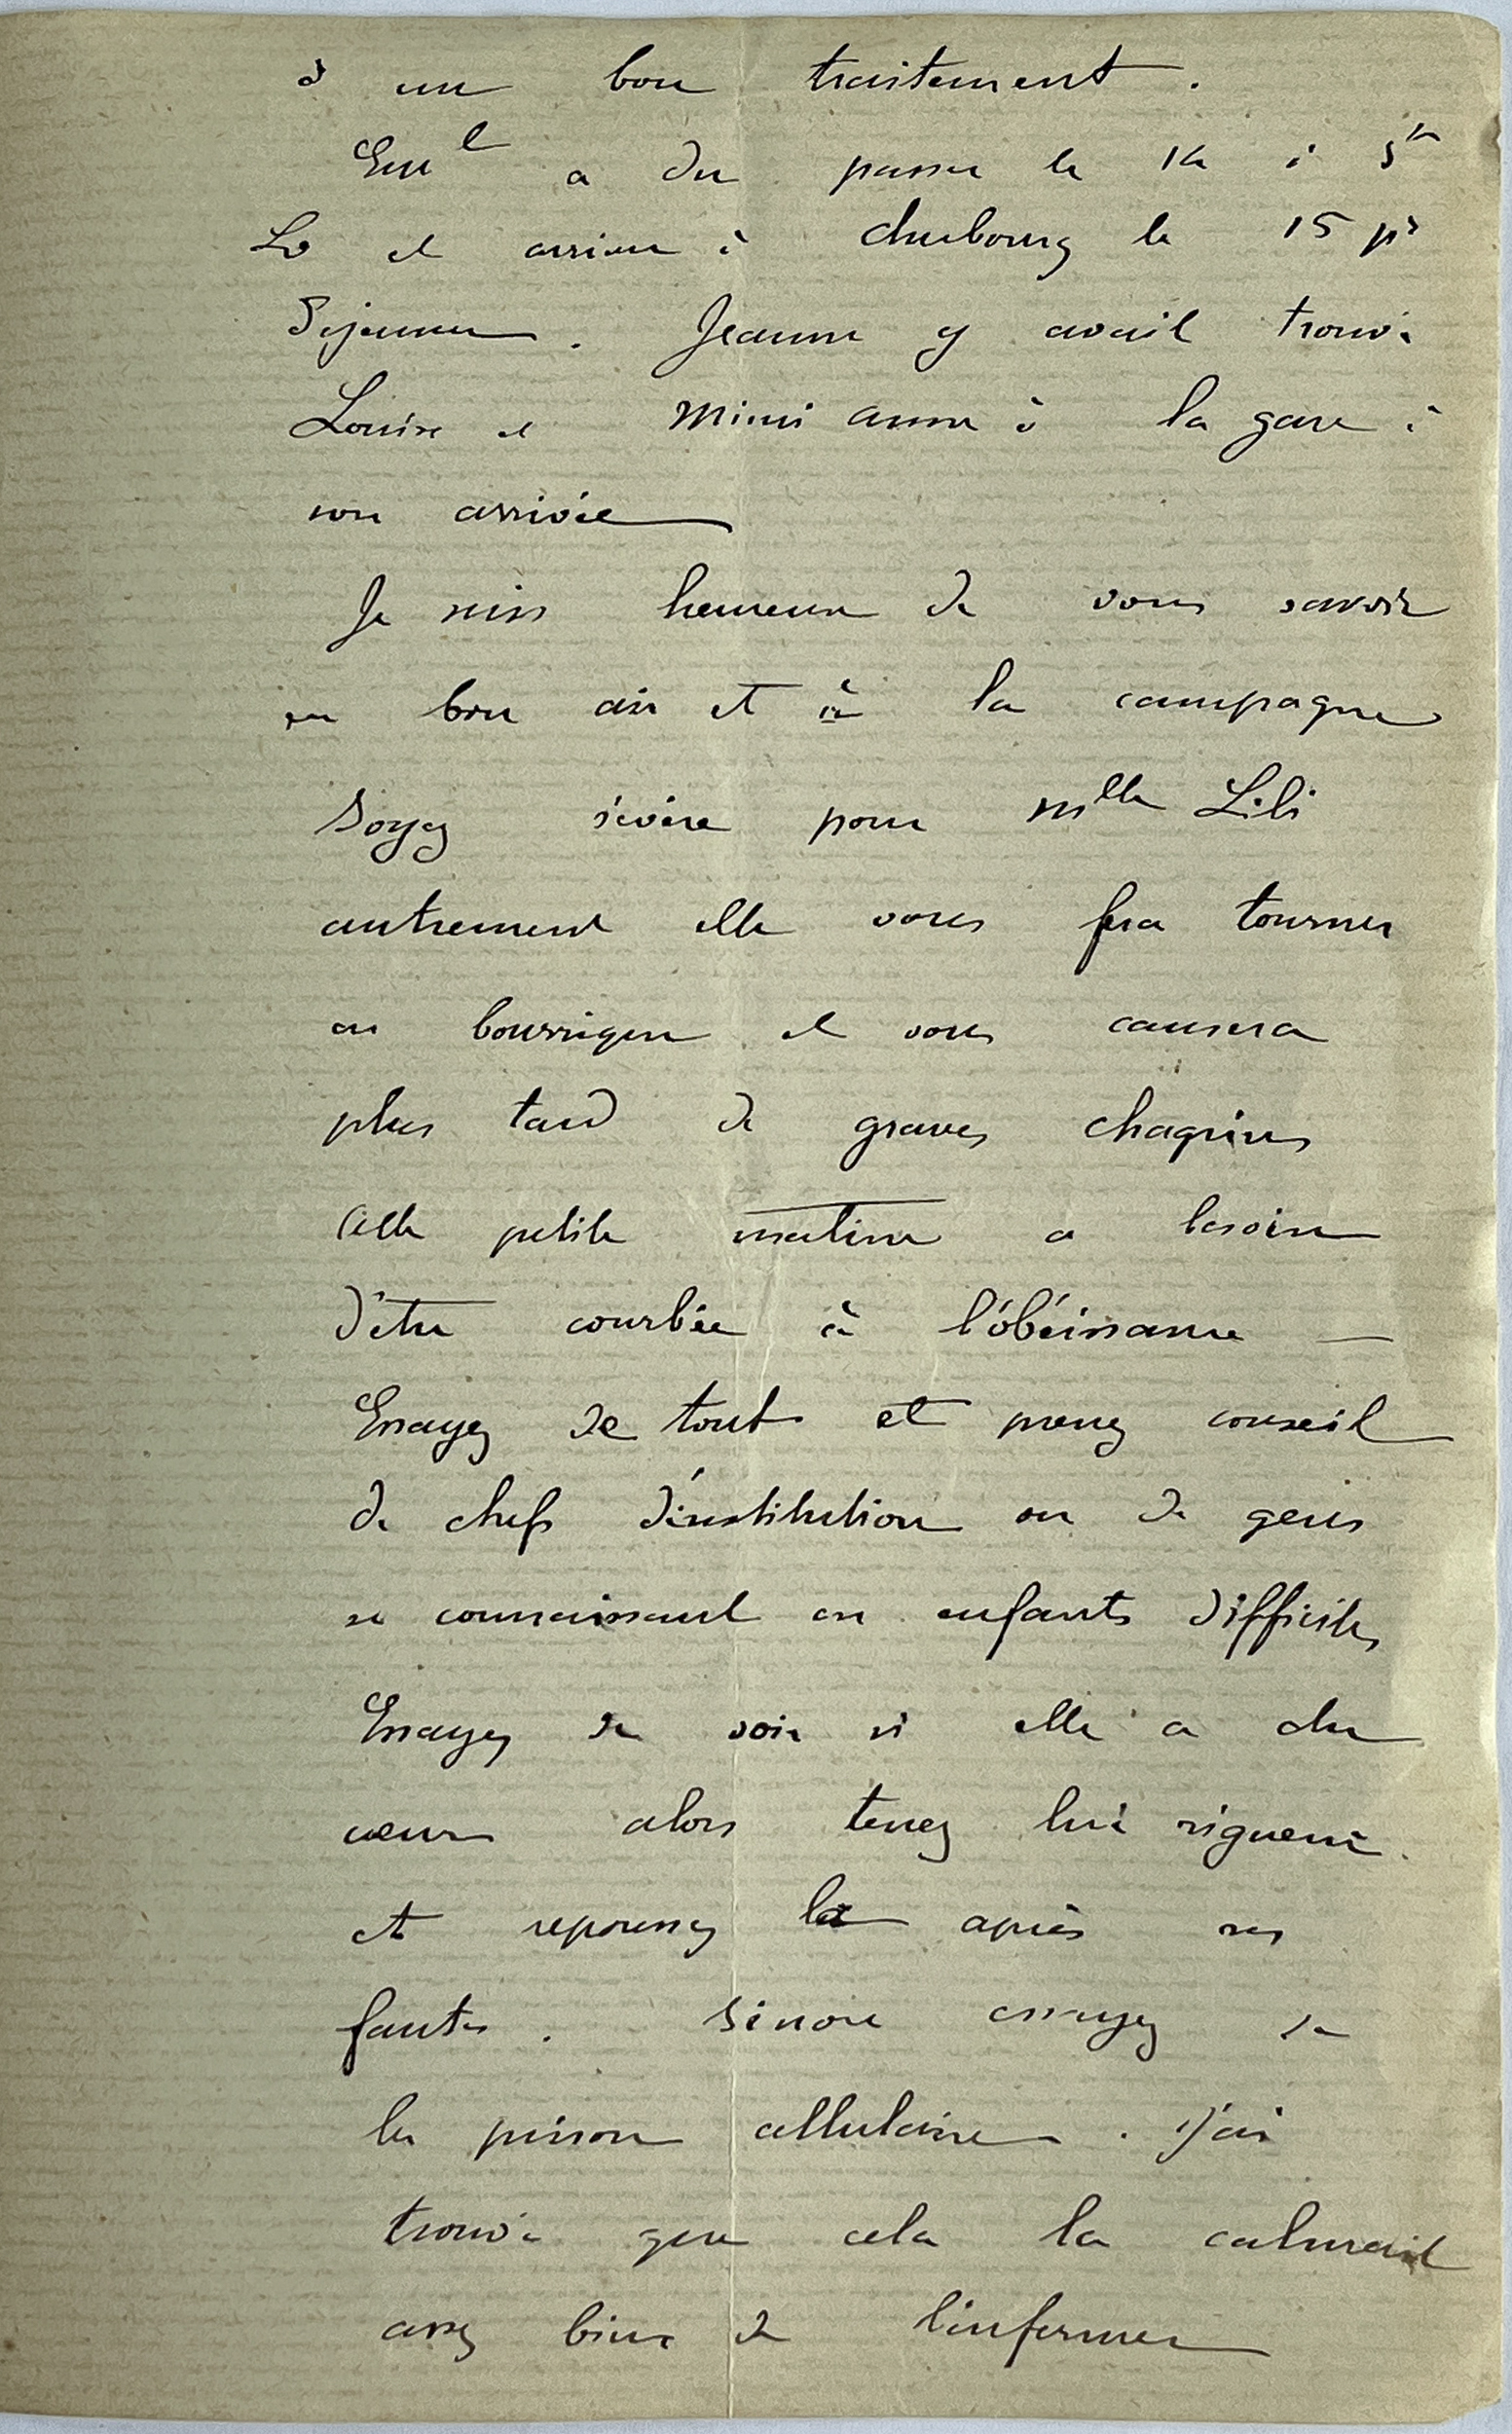 à un bon traitement.
Eml a du passer le 14 à St
Lo et arriver à Cherbourg le 15 pr
Dejeuner. Jeanne y avait trouvé
Louise et Mimi Anna à la gare à
son arrivée
Je suis heureux de vous savoir
en bon air et à la campagne
Soyez sévère pour Mlle Lili
autrement elle vous fera tourner
en bourrique et vous causera
plus tard de graves chagrins
Cette petite matine a besoin
d'être courbée à l'obéissance —
Essayez de tout et prenez conseil
de chefs d'institution ou de gens
se connaissant en enfants difficiles
Essayez de voir si elle a du
cœur alors tenez lui rigueur
et repoussez la après ses
fautes. Sinon essayez de
la prison cellulaire. J'ai
trouvé que cela la calmait
assez bien de l'enfermer